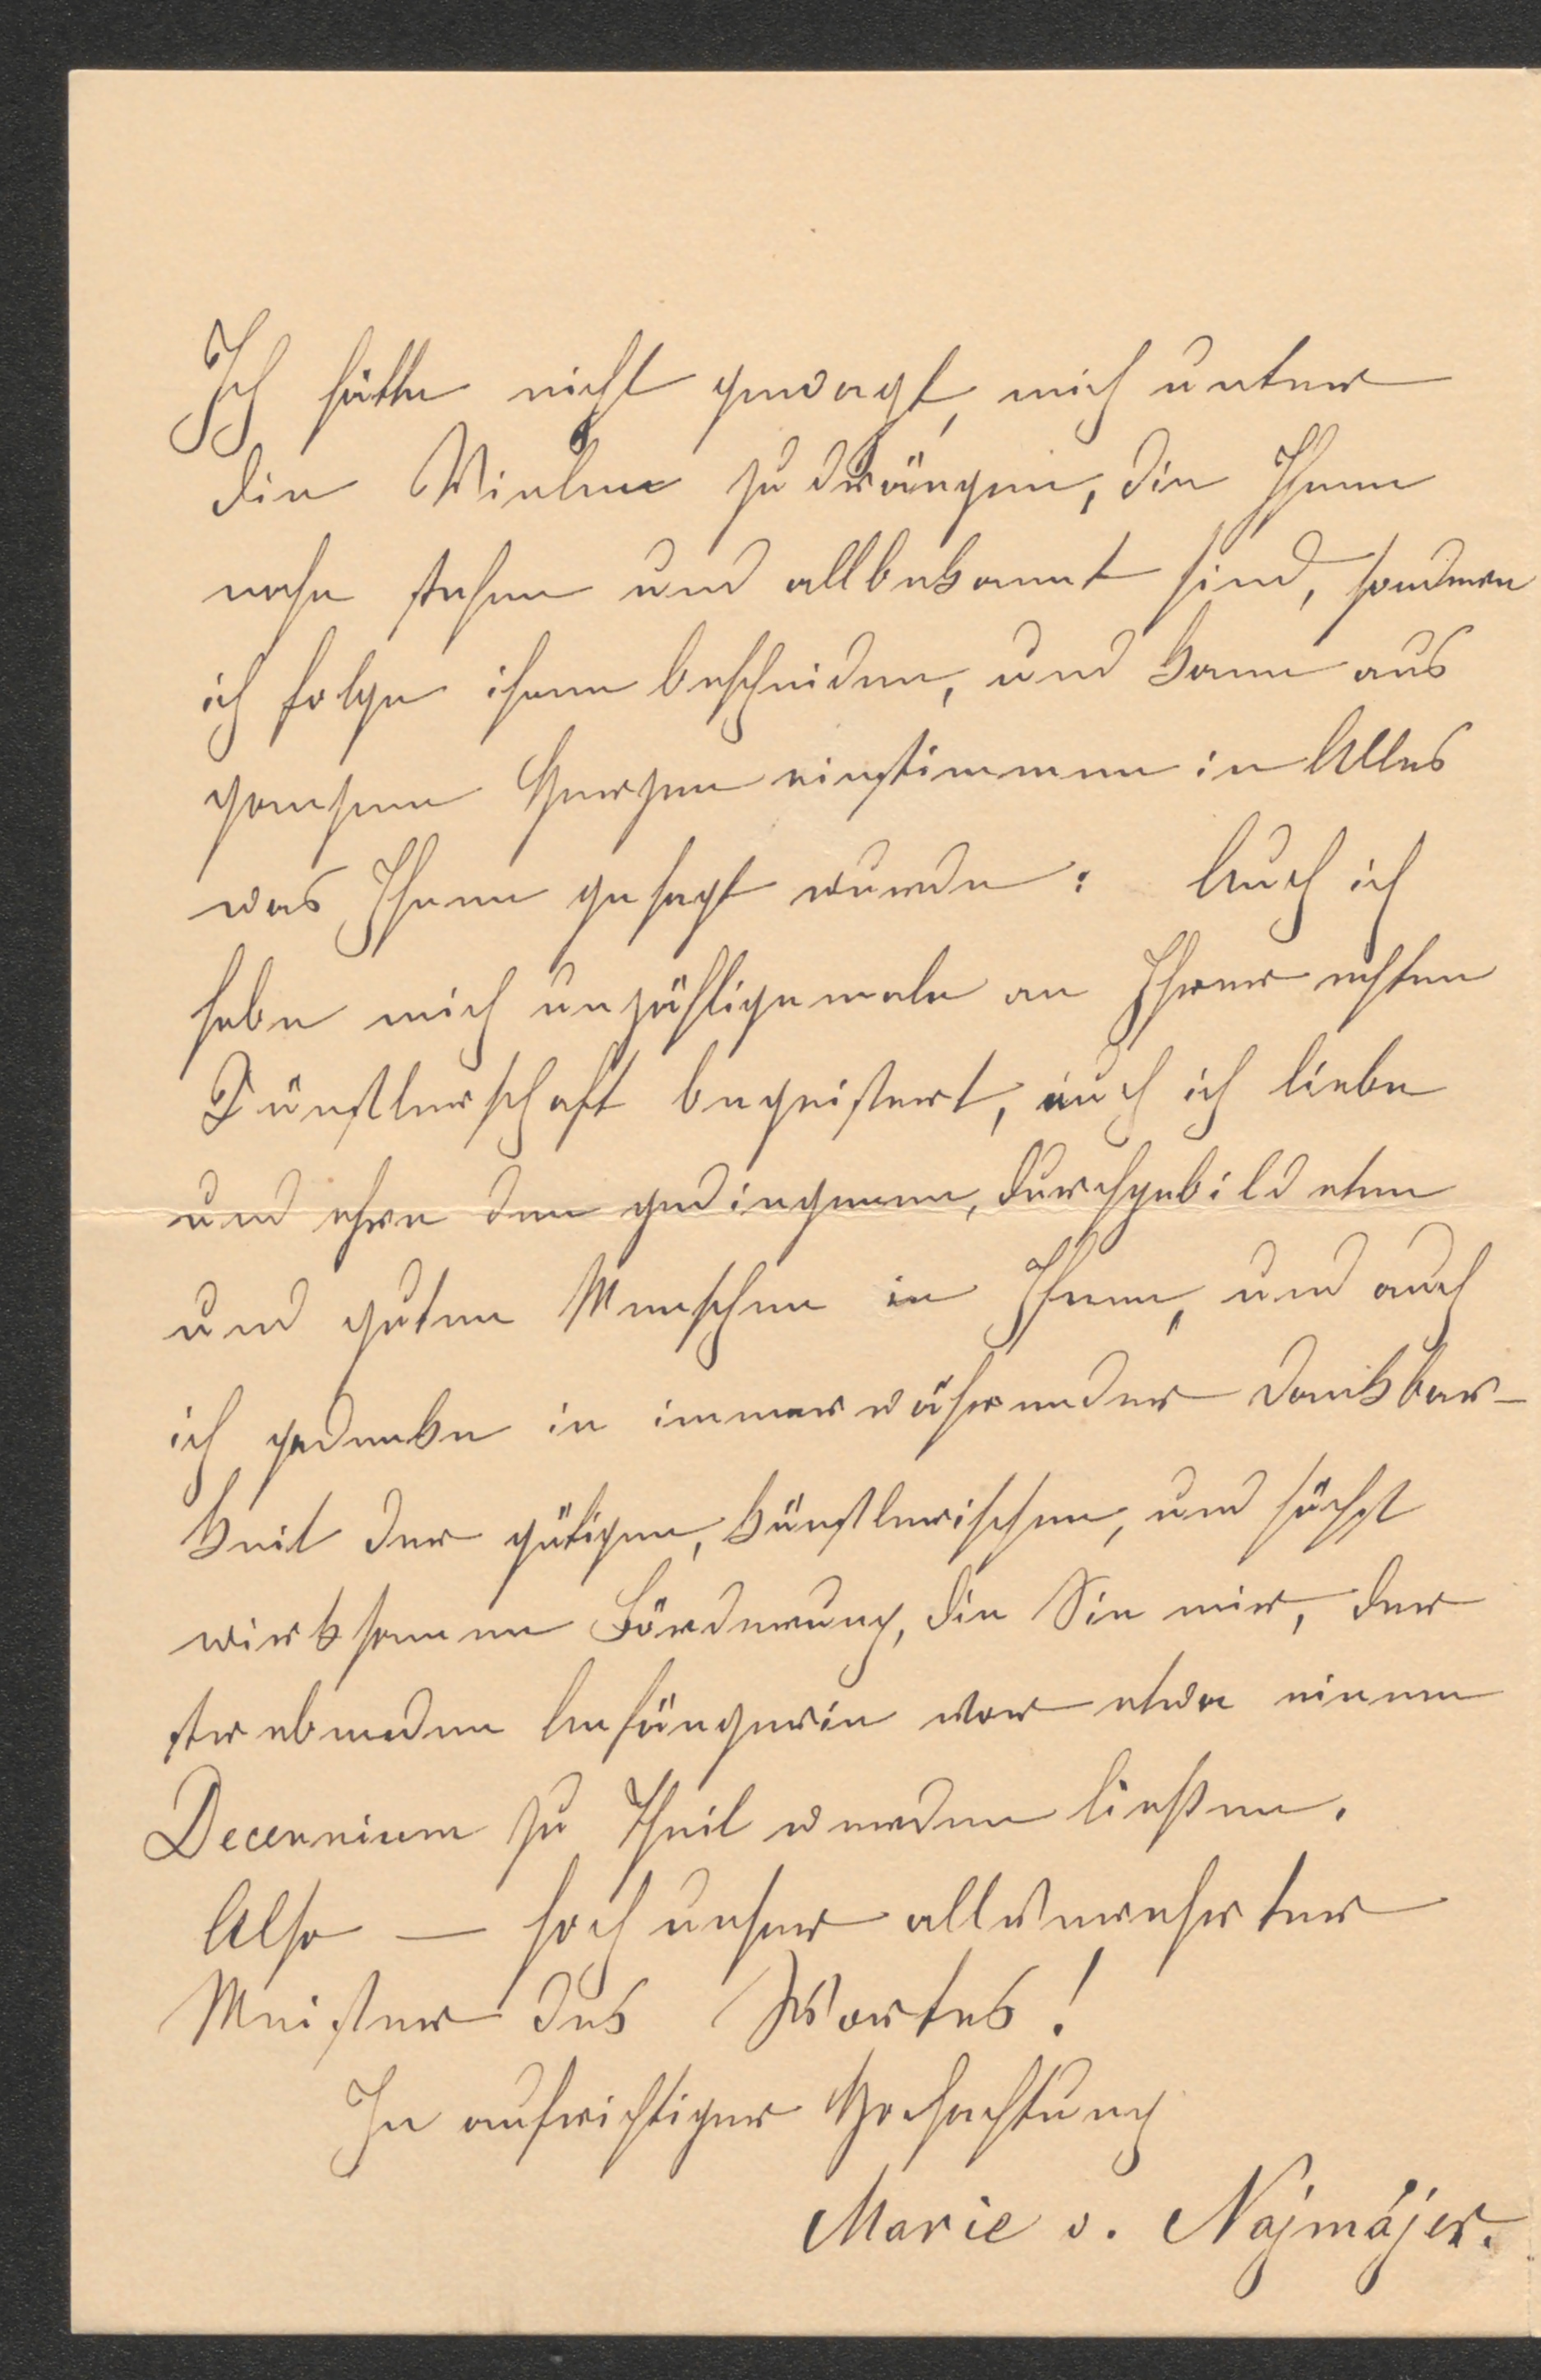 Ich hätte nicht gewagt, mich unter
die Vielen zu drängen, die Ihnen
nahe stehen und allbekannt sind, sondern
ich folge ihnen bescheiden, und kann aus
ganzem Herzen einstimmen in Alles
was Ihnen gesagt wurde: Auch ich
habe mich unzähligemale an Ihrer echten
Künstlerschaft begeistert, auch ich liebe
und ehre den gediegenen, durchgebildeten
und guten Menschen in Ihnen, und auch
ich gedenke in immerwährender Dankbar-
keit der gütigen, künstlerischen, und höchst
wirksamen Förderung, die Sie mir, der
strebenden Anfängerin vor etwa einem
Decennium zu Theil werden ließen.
Also — hoch unser allverehrter
Meister des Wortes!
In aufrichtiger Hochachtung
Marie v. Najmájer.